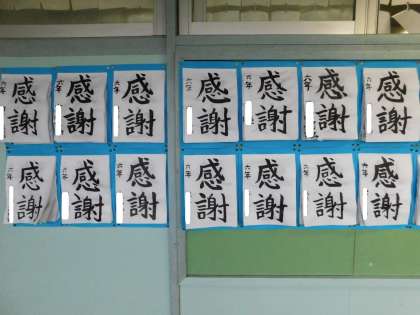 感謝
六年
感謝
六年
感謝
六年
感謝
六年
感謝
六年
感謝
六年
感謝
六年
感謝
六年
感謝
六年
感謝
六年
感謝
六年
感謝
六年
感謝
六年
感謝
六年